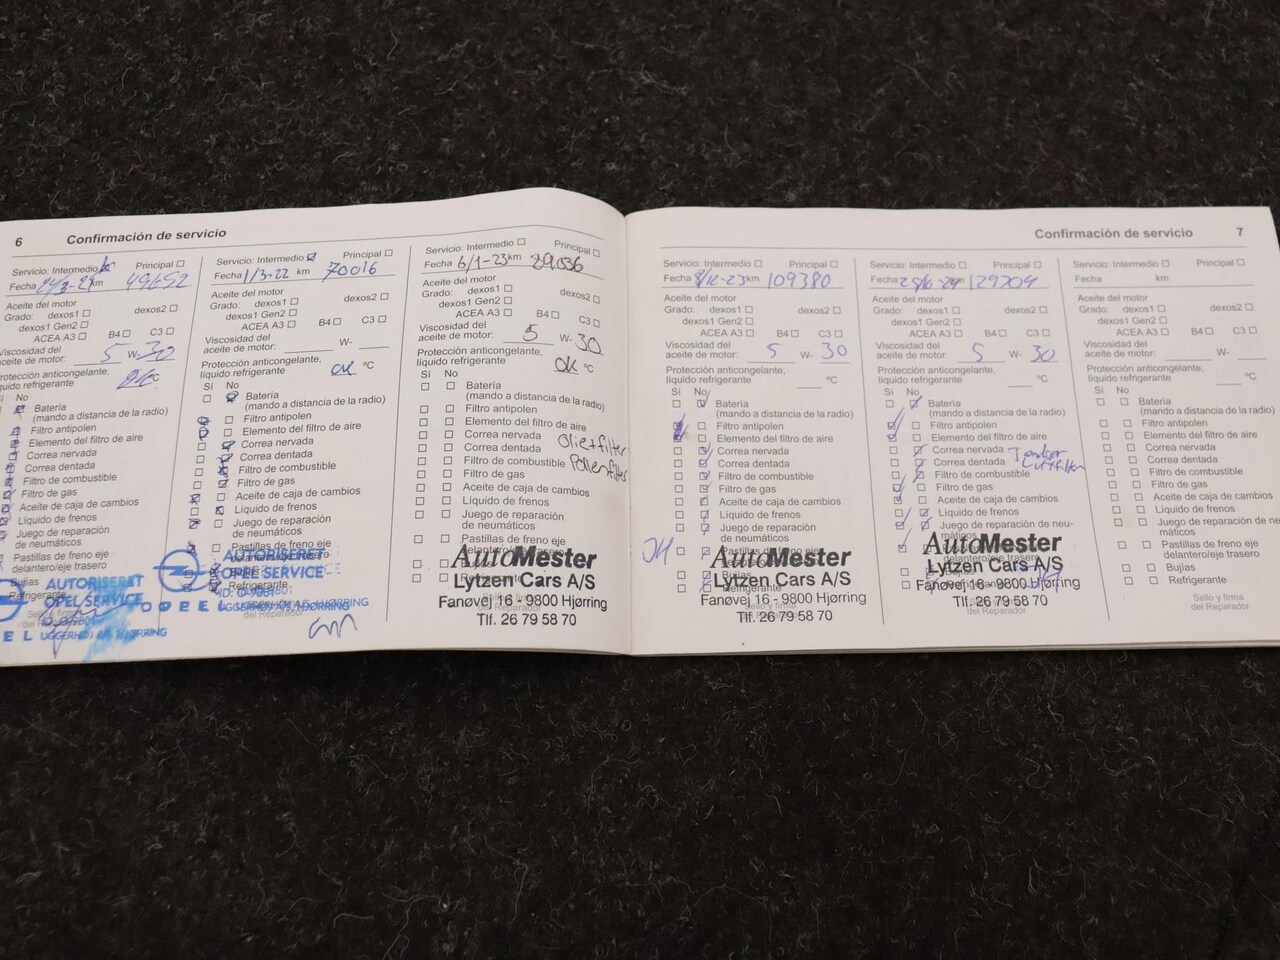 6 Confirmación de servicio
Servicio: Intermedio Principal
Fecha km 49652
Aceite del motor
Grado: dexos1 dexos2
dexos1 Gen2
ACEA A3 B4 C3
Viscosidad del
aceite de motor: 5 W- 30
Protección anticongelante,
líquido refrigerante °C
Sí No
Batería
(mando a distancia de la radio)
Filtro antipolen
Elemento del filtro de aire
Correa nervada
Correa dentada
Filtro de combustible
Filtro de gas
Aceite de caja de cambios
Líquido de frenos
Juego de reparación
de neumáticos
Pastillas de freno eje
delantero/eje trasero
Bujías
Refrigerante
AUTORISERET
OPEL SERVICE
UGGERHØJ A/S HJØRRING
Servicio: Intermedio Principal
Fecha 1/3-22 km 70016
Aceite del motor
Grado: dexos1 dexos2
dexos1 Gen2
ACEA A3 B4 C3
Viscosidad del
aceite de motor: W-
Protección anticongelante,
líquido refrigerante ok °C
Sí No
Batería
(mando a distancia de la radio)
Filtro antipolen
Elemento del filtro de aire
Correa nervada
Correa dentada
Filtro de combustible
Filtro de gas
Aceite de caja de cambios
Líquido de frenos
Juego de reparación
de neumáticos
Pastillas de freno eje
Refrigerante
AUTORISERET
OPEL SERVICE
OPEL UGGERHØJ A/S HJØRRING
del Reparador
Servicio: Intermedio Principal
Fecha 6/1-23 km 89036
Aceite del motor
Grado: dexos1 dexos2
dexos1 Gen2
ACEA A3 B4 C3
Viscosidad del
aceite de motor: 5 W- 30
Protección anticongelante,
líquido refrigerante ok °C
Sí No
Batería
(mando a distancia de la radio)
Filtro antipolen
Elemento del filtro de aire
Correa nervada Olie+filter
Correa dentada
Filtro de combustible Pollenfilter
Filtro de gas
Aceite de caja de cambios
Líquido de frenos
Juego de reparación
de neumáticos
Pastillas de freno eje
delantero/eje trasero
AutoMester
Lytzen Cars A/S
Fanøvej 16 - 9800 Hjørring
Tlf. 26 79 58 70
Confirmación de servicio 7
Servicio: Intermedio Principal
Fecha 8/12-23 km 109380
Aceite del motor
Grado: dexos1 dexos2
dexos1 Gen2
ACEA A3 B4 C3
Viscosidad del
aceite de motor: 5 W- 30
Protección anticongelante,
líquido refrigerante °C
Sí No
Batería
(mando a distancia de la radio)
Filtro antipolen
Elemento del filtro de aire
Correa nervada
Correa dentada
Filtro de combustible
Filtro de gas
Aceite de caja de cambios
Líquido de frenos
Juego de reparación
de neumáticos
Pastillas de freno eje
Bujías
AutoMester
Lytzen Cars A/S
Fanøvej 16 - 9800 Hjørring
Tlf. 26 79 58 70
Servicio: Intermedio Principal
Fecha km 129704
Aceite del motor
Grado: dexos1 dexos2
dexos1 Gen2
ACEA A3 B4 C3
Viscosidad del
aceite de motor: 5 W- 30
Protección anticongelante,
líquido refrigerante °C
Sí No
Batería
(mando a distancia de la radio)
Filtro antipolen
Elemento del filtro de aire
Correa nervada
Correa dentada Luftfilter
Filtro de combustible
Filtro de gas
Aceite de caja de cambios
Líquido de frenos
Juego de reparación de neu-
máticos
delantero/eje trasero
AutoMester
Lytzen Cars A/S
Fanøvej 16 - 9800 Hjørring
Tlf. 26 79 58 70
del Reparador
Servicio: Intermedio Principal
Fecha km
Aceite del motor
Grado: dexos1 dexos2
dexos1 Gen2
ACEA A3 B4 C3
Viscosidad del
aceite de motor: W-
Protección anticongelante,
líquido refrigerante °C
Sí No
Batería
(mando a distancia de la radio)
Filtro antipolen
Elemento del filtro de aire
Correa nervada
Correa dentada
Filtro de combustible
Filtro de gas
Aceite de caja de cambios
Líquido de frenos
Juego de reparación de neu-
máticos
Pastillas de freno eje
delantero/eje trasero
Bujías
Refrigerante
Sello y firma
del Reparador